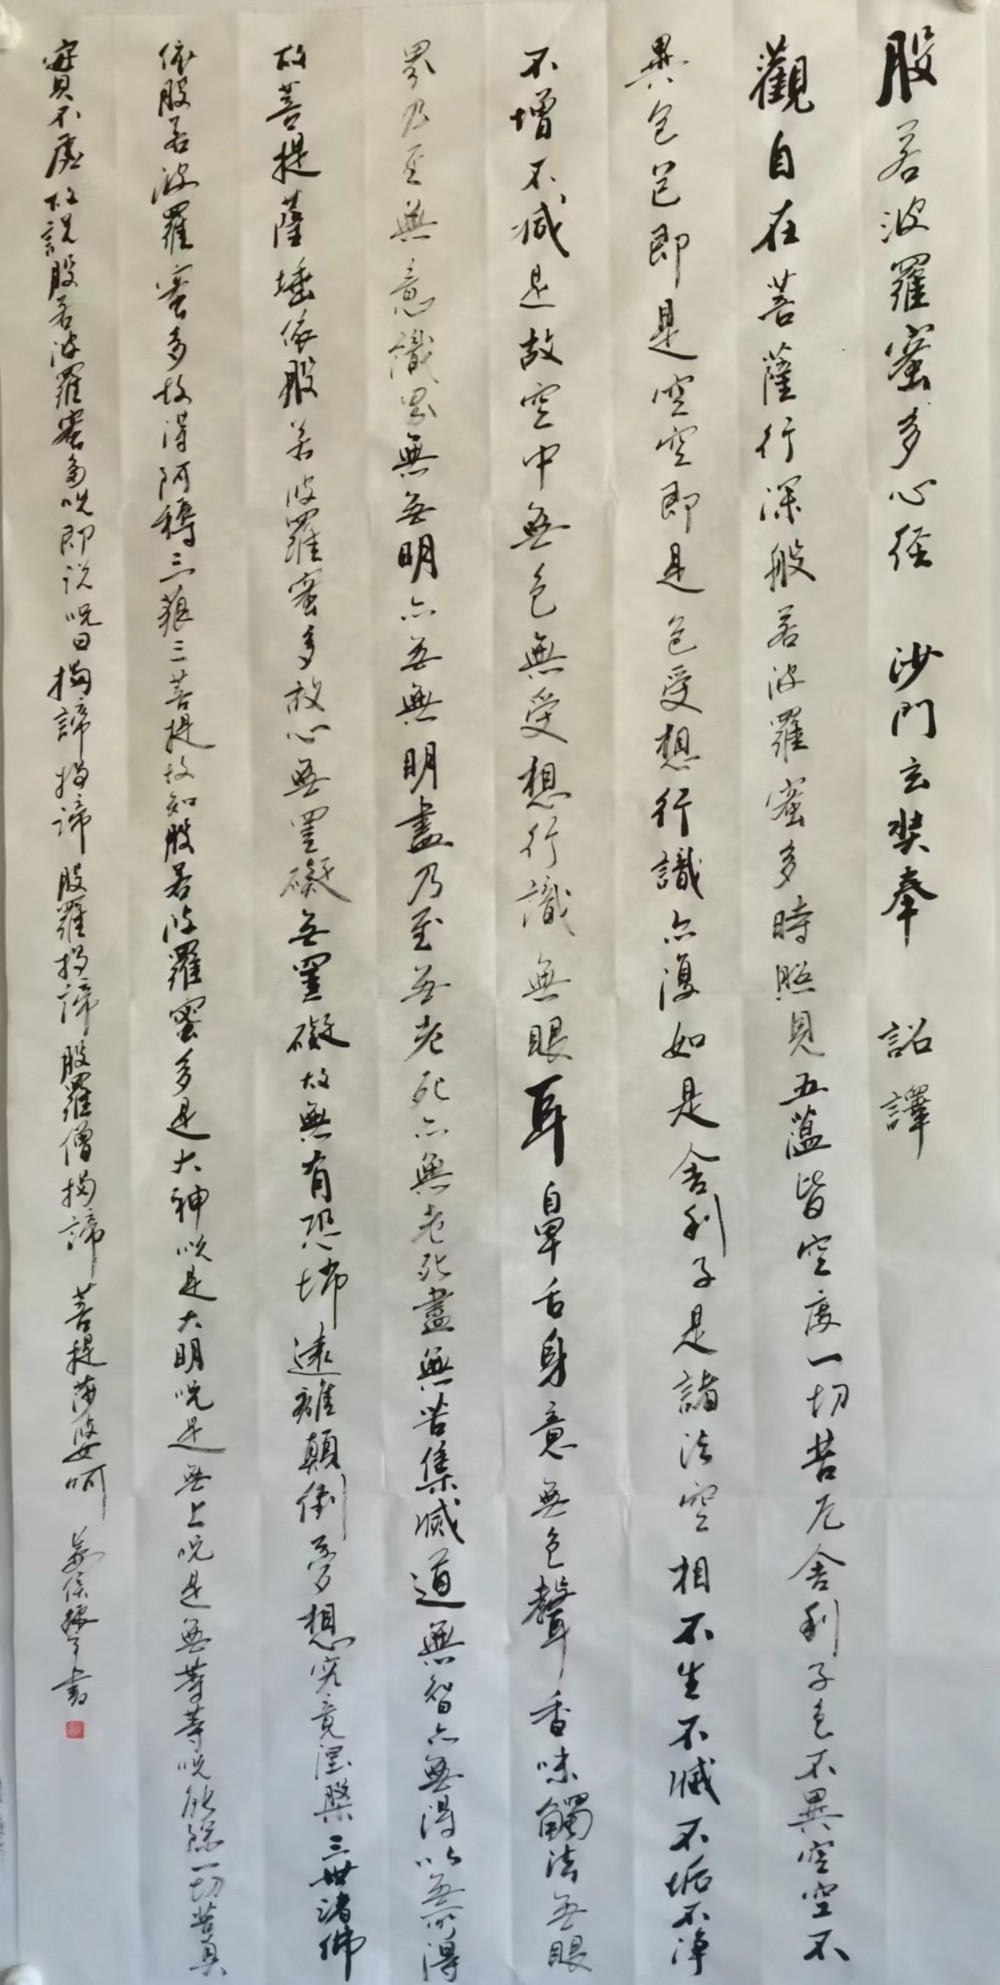 般若波羅蜜多心経 沙門玄奘奉 詔譯
觀自在菩薩行深般若波羅蜜多時照見五蘊皆空度一切苦厄舍利子色不異空空不
異色色即是空空即是色受想行識亦復如是舍利子是諸法空相不生不滅不垢不淨
不增不減是故空中無色無受想行識無眼耳鼻舌身意無色聲香味觸法無眼
界乃至無意識界無無明亦無無明盡乃至無老死亦無老死盡無苦集滅道無智亦無得以無所得
故菩提薩埵依般若波羅蜜多故心無罣礙無罣礙故無有恐怖遠離顛倒夢想究竟涅槃三世諸佛
依般若波羅蜜多故得阿耨三藐三菩提故知般若波羅蜜多是大神咒是大明咒是無上咒是無等等咒能除一切苦真
實不虛故說般若波羅蜜多咒即说咒曰揭諦揭諦般羅揭諦般羅僧揭諦菩提薩婆呵 書